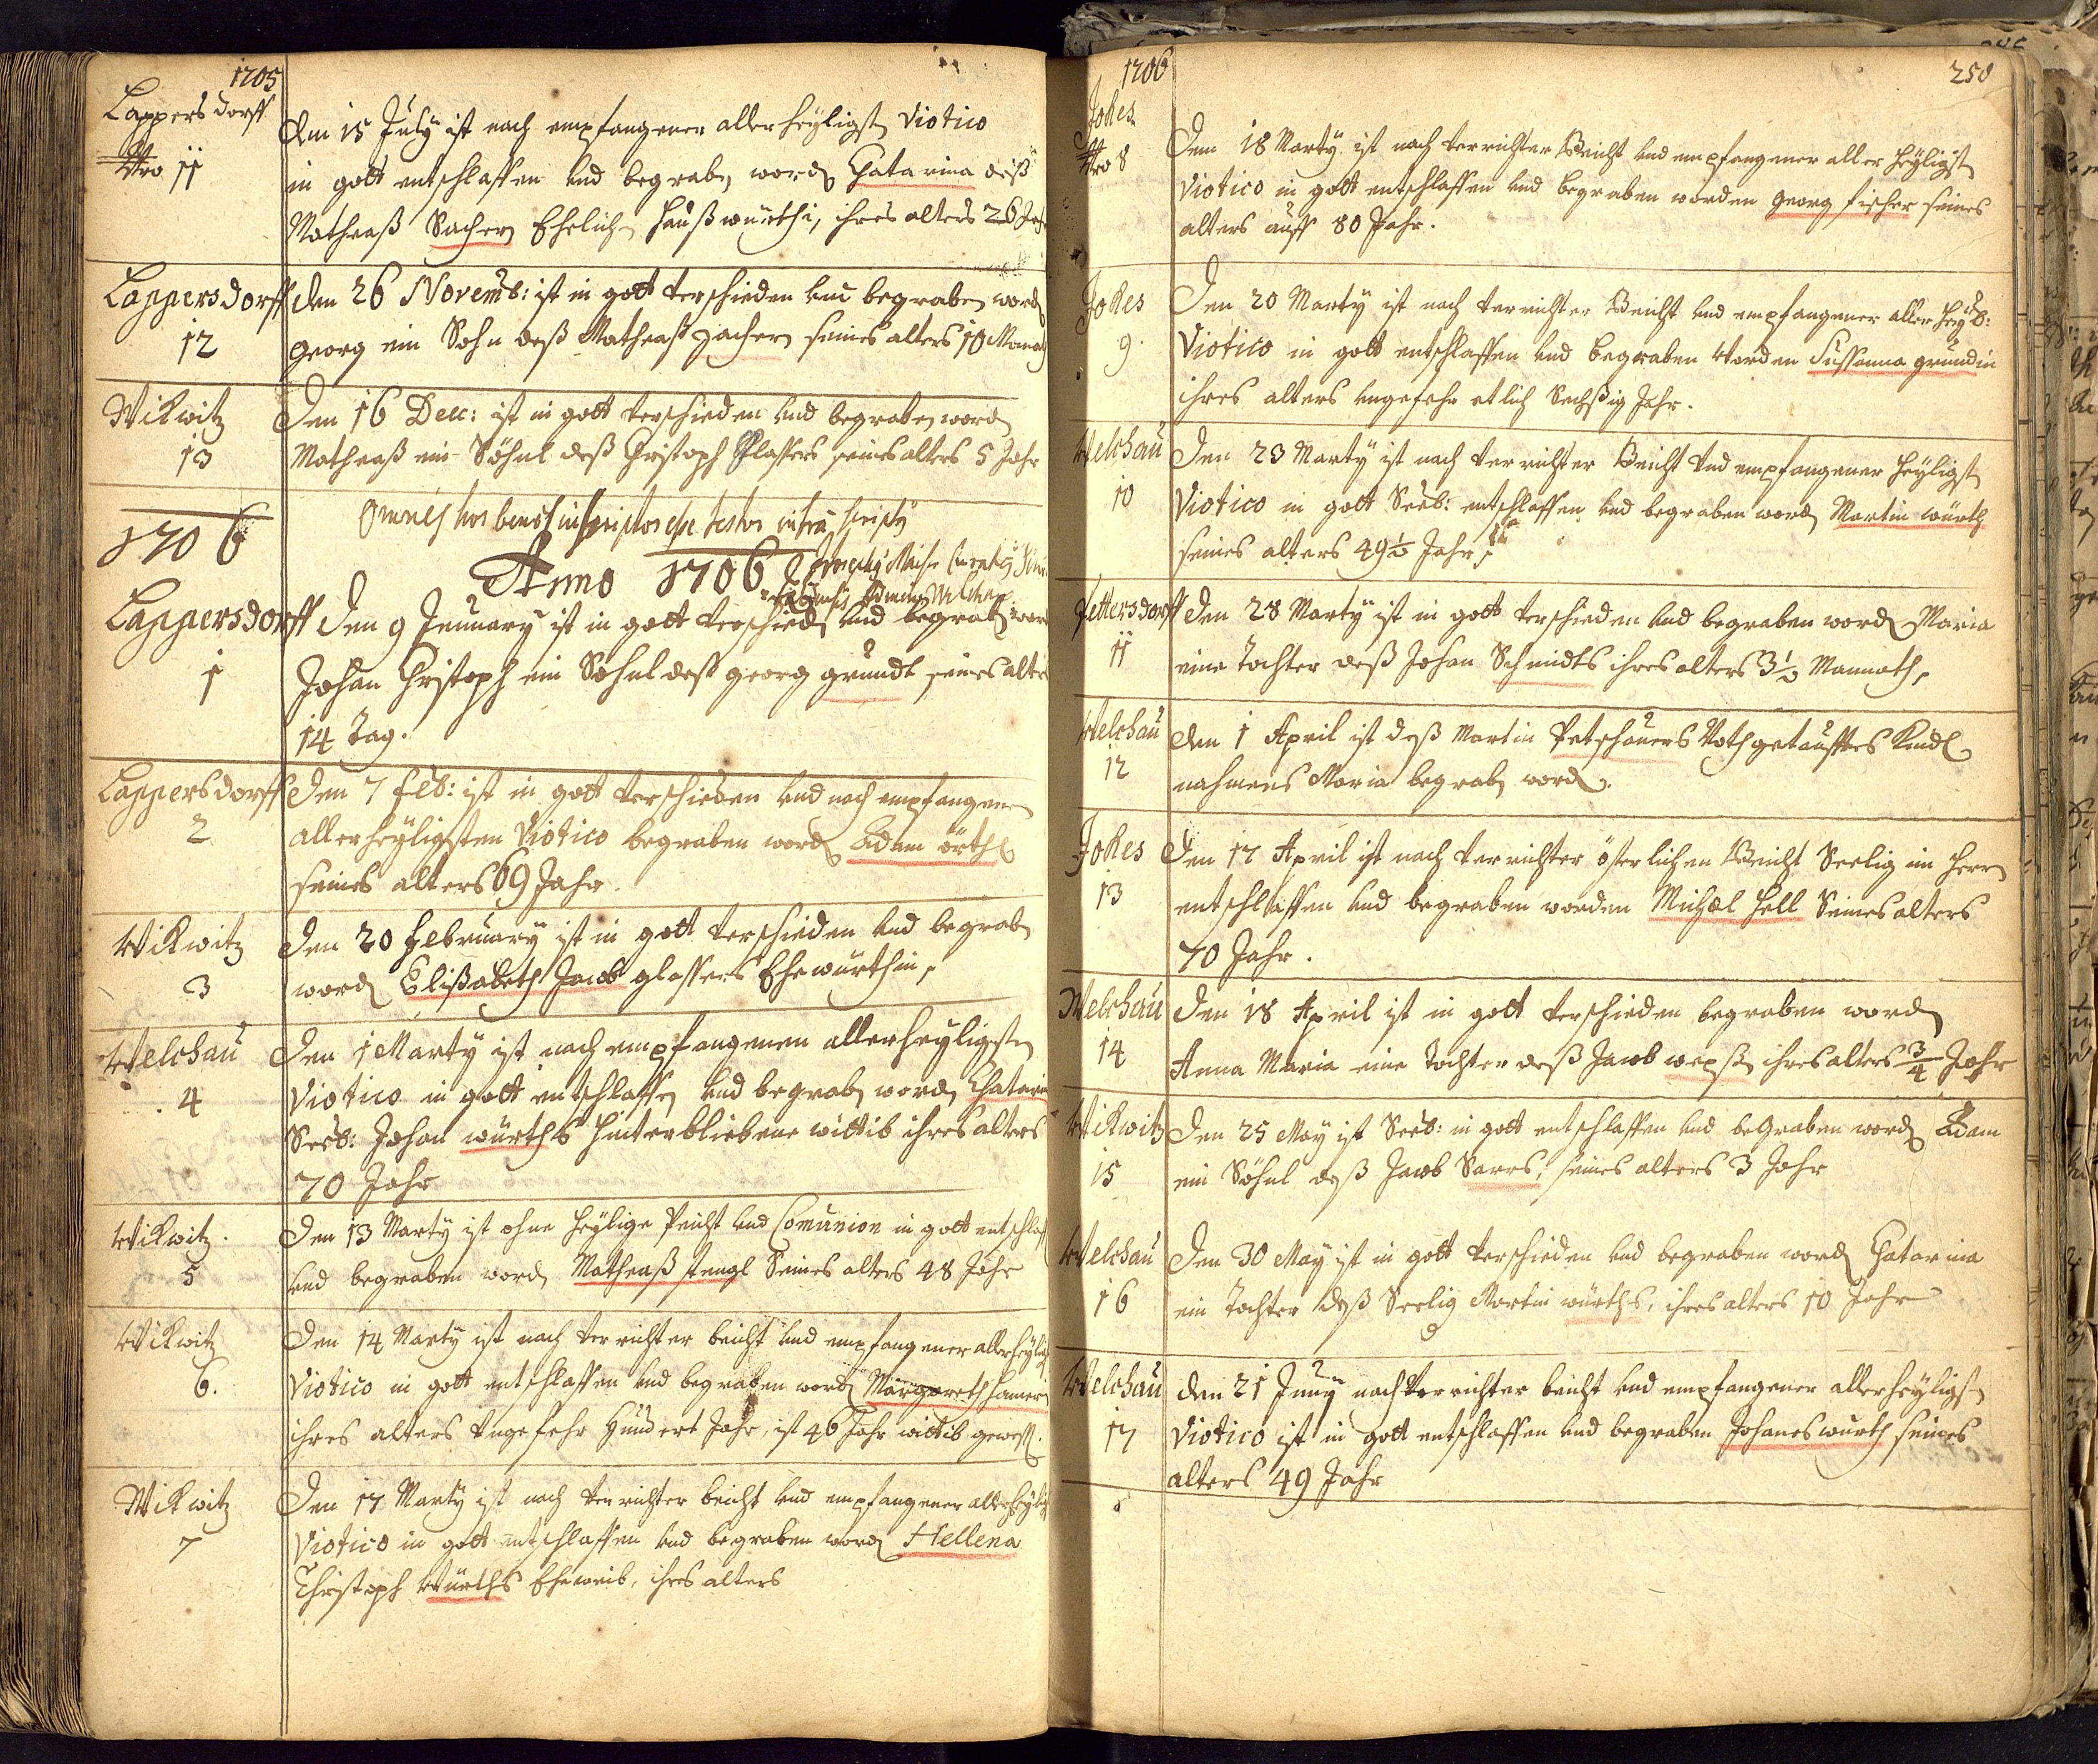 1705
Lappersdorff
Nro 11
Den 15 July ist nach empfangenen allerheyligst Viatico
in gott entschlaffen und begrab word Chatarina deß
Matheaß Sachers Ehelich haußwürthi, ihres alters 26 Jahr
Lappersdorff
12
den 26 Novemb: ist in gott verschieden und begraben word
georg ein Sohn deß Matheaß zachers seines alters 10 Monath
Wikwitz
13
Den 16 Dec: ist in gott verschieden und begraben word
Matheaß ein Söhnl deß Christoph Glassers seines alters 5 Jahr
Omnes hos bene inscriptos esse testor infra scripty
1706
Anno 1706
Lappersdorff
1
Den 9 Jennuary ist in gott verschied und begrab word
Johan Christoph ein Söhnl deß georg grundt seines alters
14 Tag.
Lappersdorff
2
Den 7 feb: ist in gott verschieden und nach empfangenen
allerheyligsten Viatico begraben word Adam örthl
seines alters 69 Jahr.
Wikwitz
3
Den 20 february ist in gott verschieden und begrab
word Elißabeth Jacob glassers Ehewürthin,
Welchau
4
Den 1 Marty ist nach empfangenen allerheyligsten
Viatico in gott entschlaffen und begrab word Chatarina
Seeb: Johan würths hinterbliebene wittib ihres alters
70 Jahr
Wikwitz.
5
Den 13 Marty ist ohne heylige Peicht und Comunion in gott entschlaf
und begraben word Matheaß stengl Seines alters 48 Jahr
Wikwitz
6.
Den 14 Marty ist nach verrichter beicht und empfangener allerheylig
Viatico in gott entschlaffen und begraben word Margareth hamer
ihres alters ungefehr Hundert Jahr, ist 46 Jahr wittib geweß.
Wikwitz
7
Den 17 Marty ist nach verrichter beicht und empfangener allerheylig
Viatico in gott entschlaffen und begraben word Hellena
Christoph Würths Eheweib, ihres alters
1706
250
Jokes
Nro 8
Den 18 Marty ist nach verrichter Beicht und empfangener allerheyligst
Viatico in gott entschlaffen und begraben worden georg fischer seines
alters auff 80 Jahr.
Jokes
9.
Den 20 Marty ist nach verrichter Beicht und empfangener aller heylb:
Viatico in gott entschlaffen und begraben Worden Sussanna grundin
ihres alters ungefehr etlich Sechßig Jahr.
Welchau
10
Den 23 Marty ist nach verrichter Beicht und empfangener heyligst
Viatico in gott Seeb: entschlaffen und begraben word Martin würth
seines alters 49 1/2 Jahr
Jettersdorff
11
Den 28 Marty ist in gott verschieden und begraben word Maria
eine Tochter deß Johan Schmidts ihres alters 3 1/2 Mannath,
Welchau
12
Den 1 April ist deß Martin Petschauers Nothgetaufftes Kindl
nahmens Maria begrab word.
Jokes
13
Den 17 April ist nach verrichter österlichen Beicht Seelig im herrn
entschlaffen und begraben worden Michæl hell Seines alters
70 Jahr.
Welchau
14
Den 18 April ist in gott verschieden begraben word
Anna Maria eine Tochter deß Jacob wepß ihres alters 3/4 Jahr
Wikwitz
15
Den 25 May ist Seeb: in gott entschlaffen und beGraben word Adam
ein Söhnl deß Jacob Sarrs, seines alters 3 Jahr
Welchau
16
Den 30 May ist in gott verschieden und begraben word Chatarina
ein Tochter deß Seelig Martin würths, ihres alters 10 Jahr
Welchau
17
den 21 Juny nach verrichter beicht und empfangener allerheyligst
Viatico ist in gott entschlaffen und begraben Johanes würth seines
alters 49 Jahr